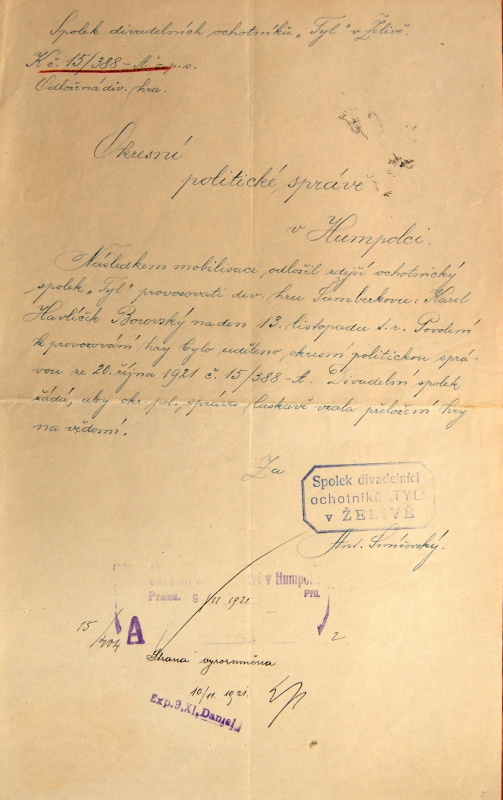 Spolek divadelních ochotníků „Tyl“ v Želivě.
K č. 15/388-A
Odložená div. hra.
Okresní
politické správě
v Humpolci.
Následkem mobilisace odložil zdejší ochotnický
spolek „Tyl“ provozovati div. hru Šamberkovu: Karel
Havlíček Borovský na den 13. listopadu t. r. Povolení
k provozování hry bylo uděleno okresní politickou sprá-
vou ze 20. října 1921 č. 15/388-A. Divadelní spolek
žádá, aby okr. pol. správa laskavě vzala přeložení hry
na vědomí.
Za
Spolek divadelních
ochotníků "TYL"
v ŽELIVĚ
Ant.
v Humpol
Praes. 9/11 1921
Příl.
15/404
A
2
Strana vyrozuměna
10/11. 1921.
Exp. 9. XI. Daniel